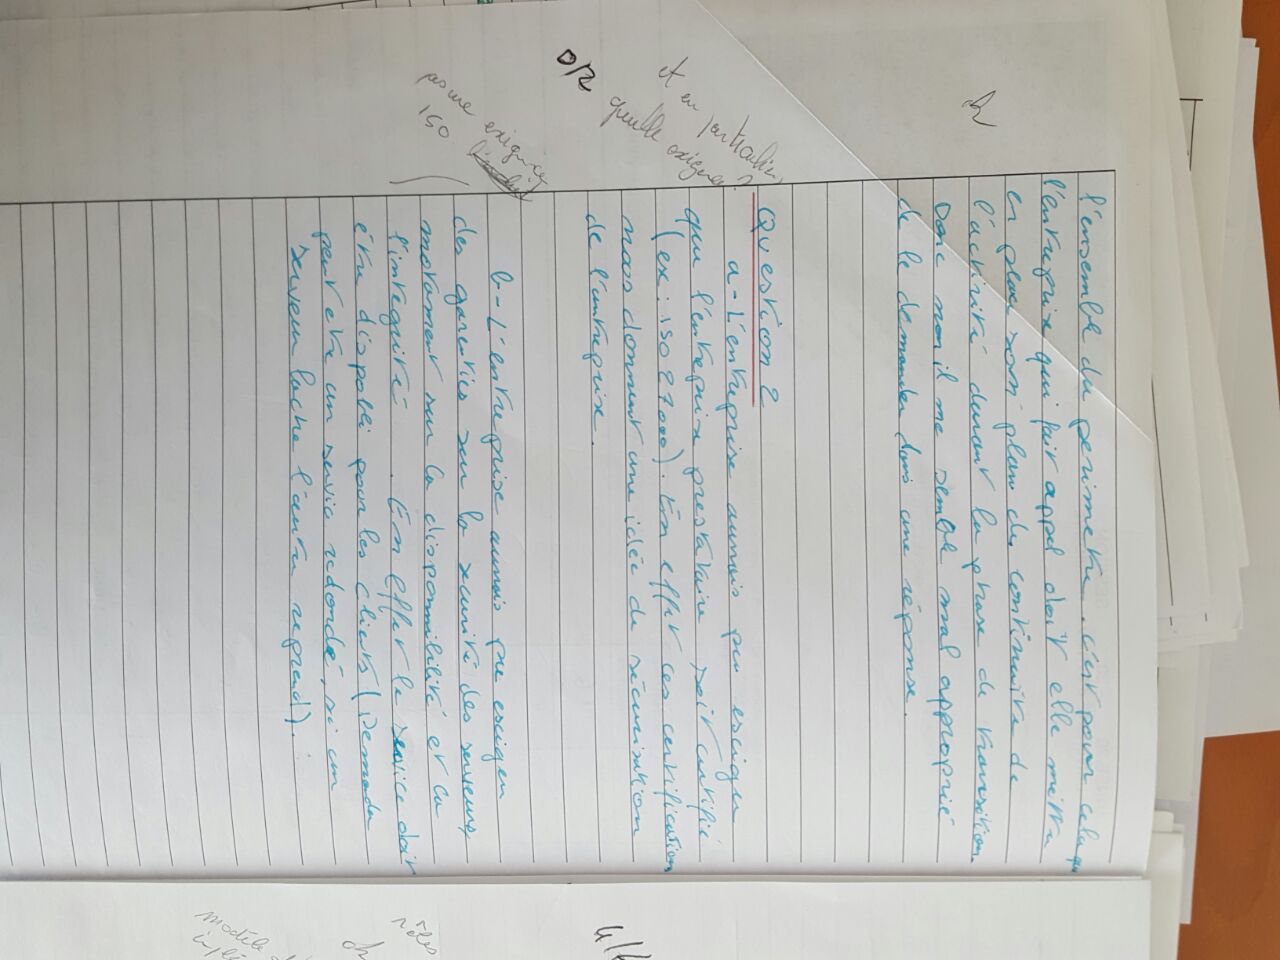 l'ensemble du perimetre. c'est pour cela que
l'entreprise qui fait appel doit elle mettre
en place son plan de continuité de
l'activité durant la phase de transition.
Donc non il me semble mal approprié
de le demander dans une réponse.
Question 2
a - L'entreprise aurais pu esciger
que l'entreprise prestataire soit certifié
(ex: ISO 27000). En effet ces certifications
nous donnent une idée de sécurisation
de l'entreprise.
et en particulier,
quelle exigence?
0/2
b - L'entreprise aurais pu esciger
des garenties sur la securité des serveurs,
notament sur la disponnibilité et la
l'integrité. En effet le service doit
être dispobli pour les clients (Demander
peut etre un servic redondé, si un
serveur lache l'autre reprend).
pas une exigence
ISO
4/
rôles
modèle